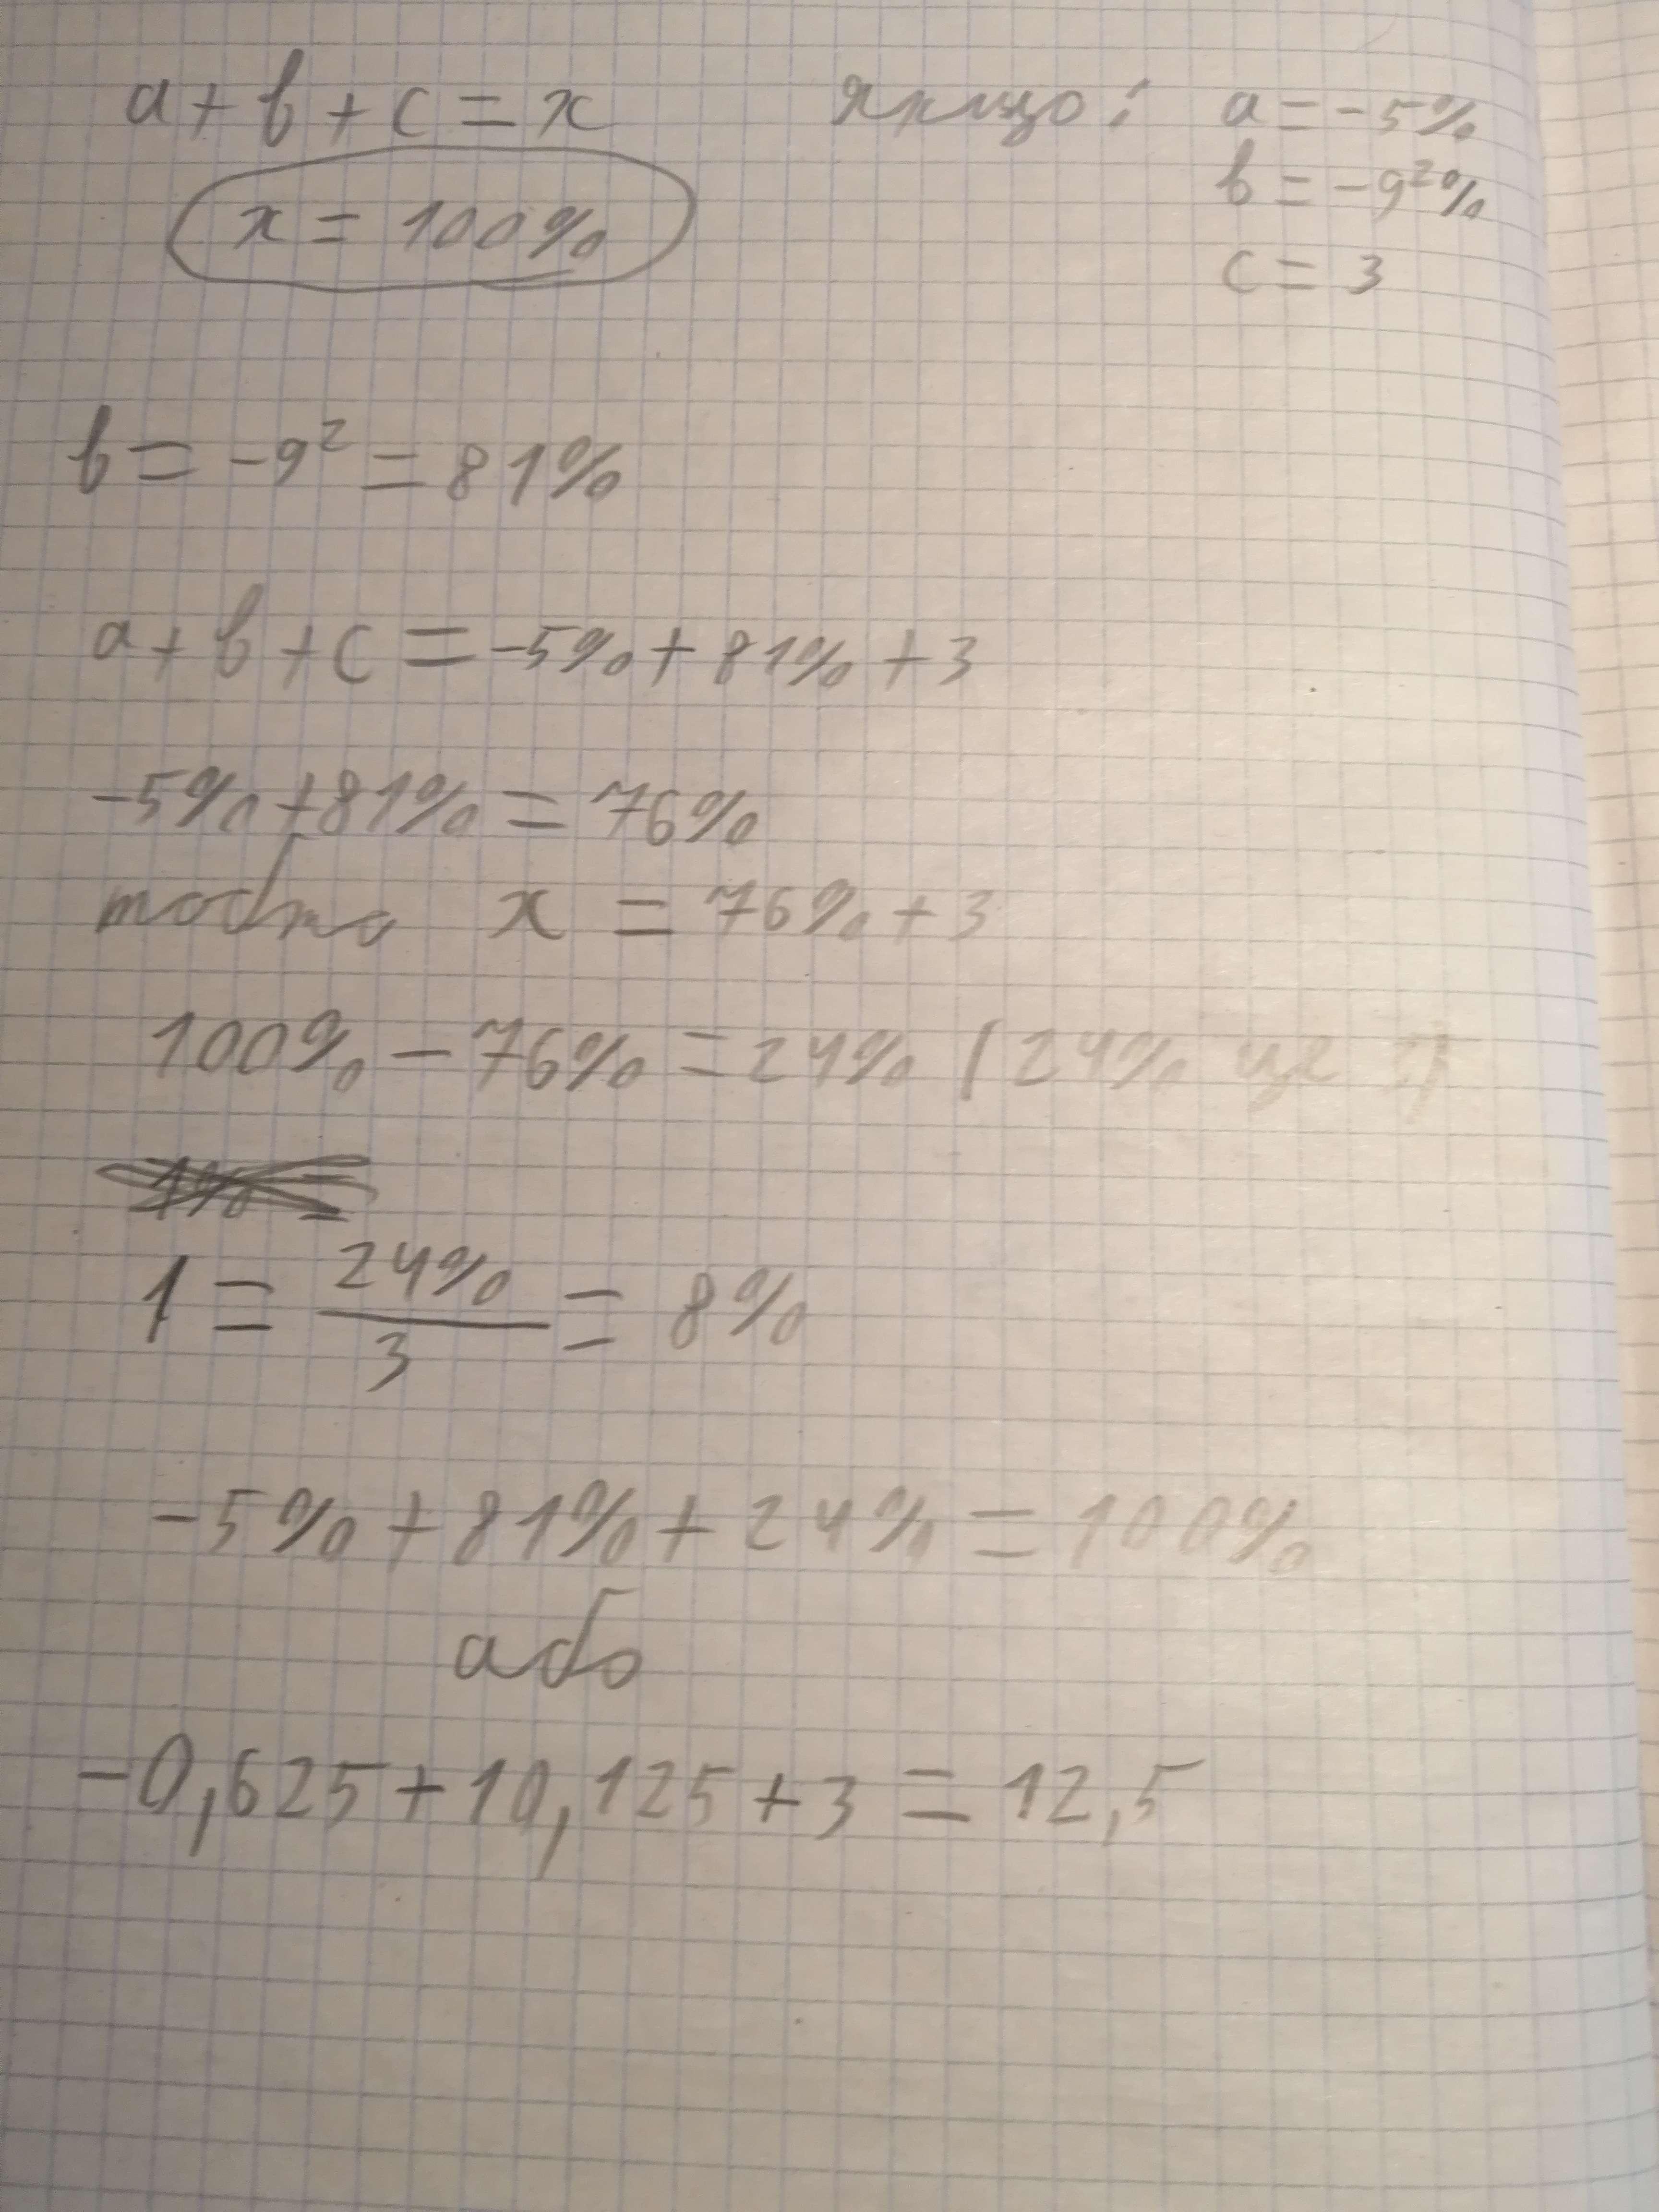 a + b + c = x якщо: a = -5%
x = 100% b = -9²%
c = 3
b = -9² = 81%
a + b + c = -5% + 81% + 3
-5% + 81% = 76%
тобто x = 76% + 3
100% - 76% = 24% (24% це 3)
1 = 24%/3 = 8%
-5% + 81% + 24% = 100%
або
-0,625 + 10,125 + 3 = 12,5